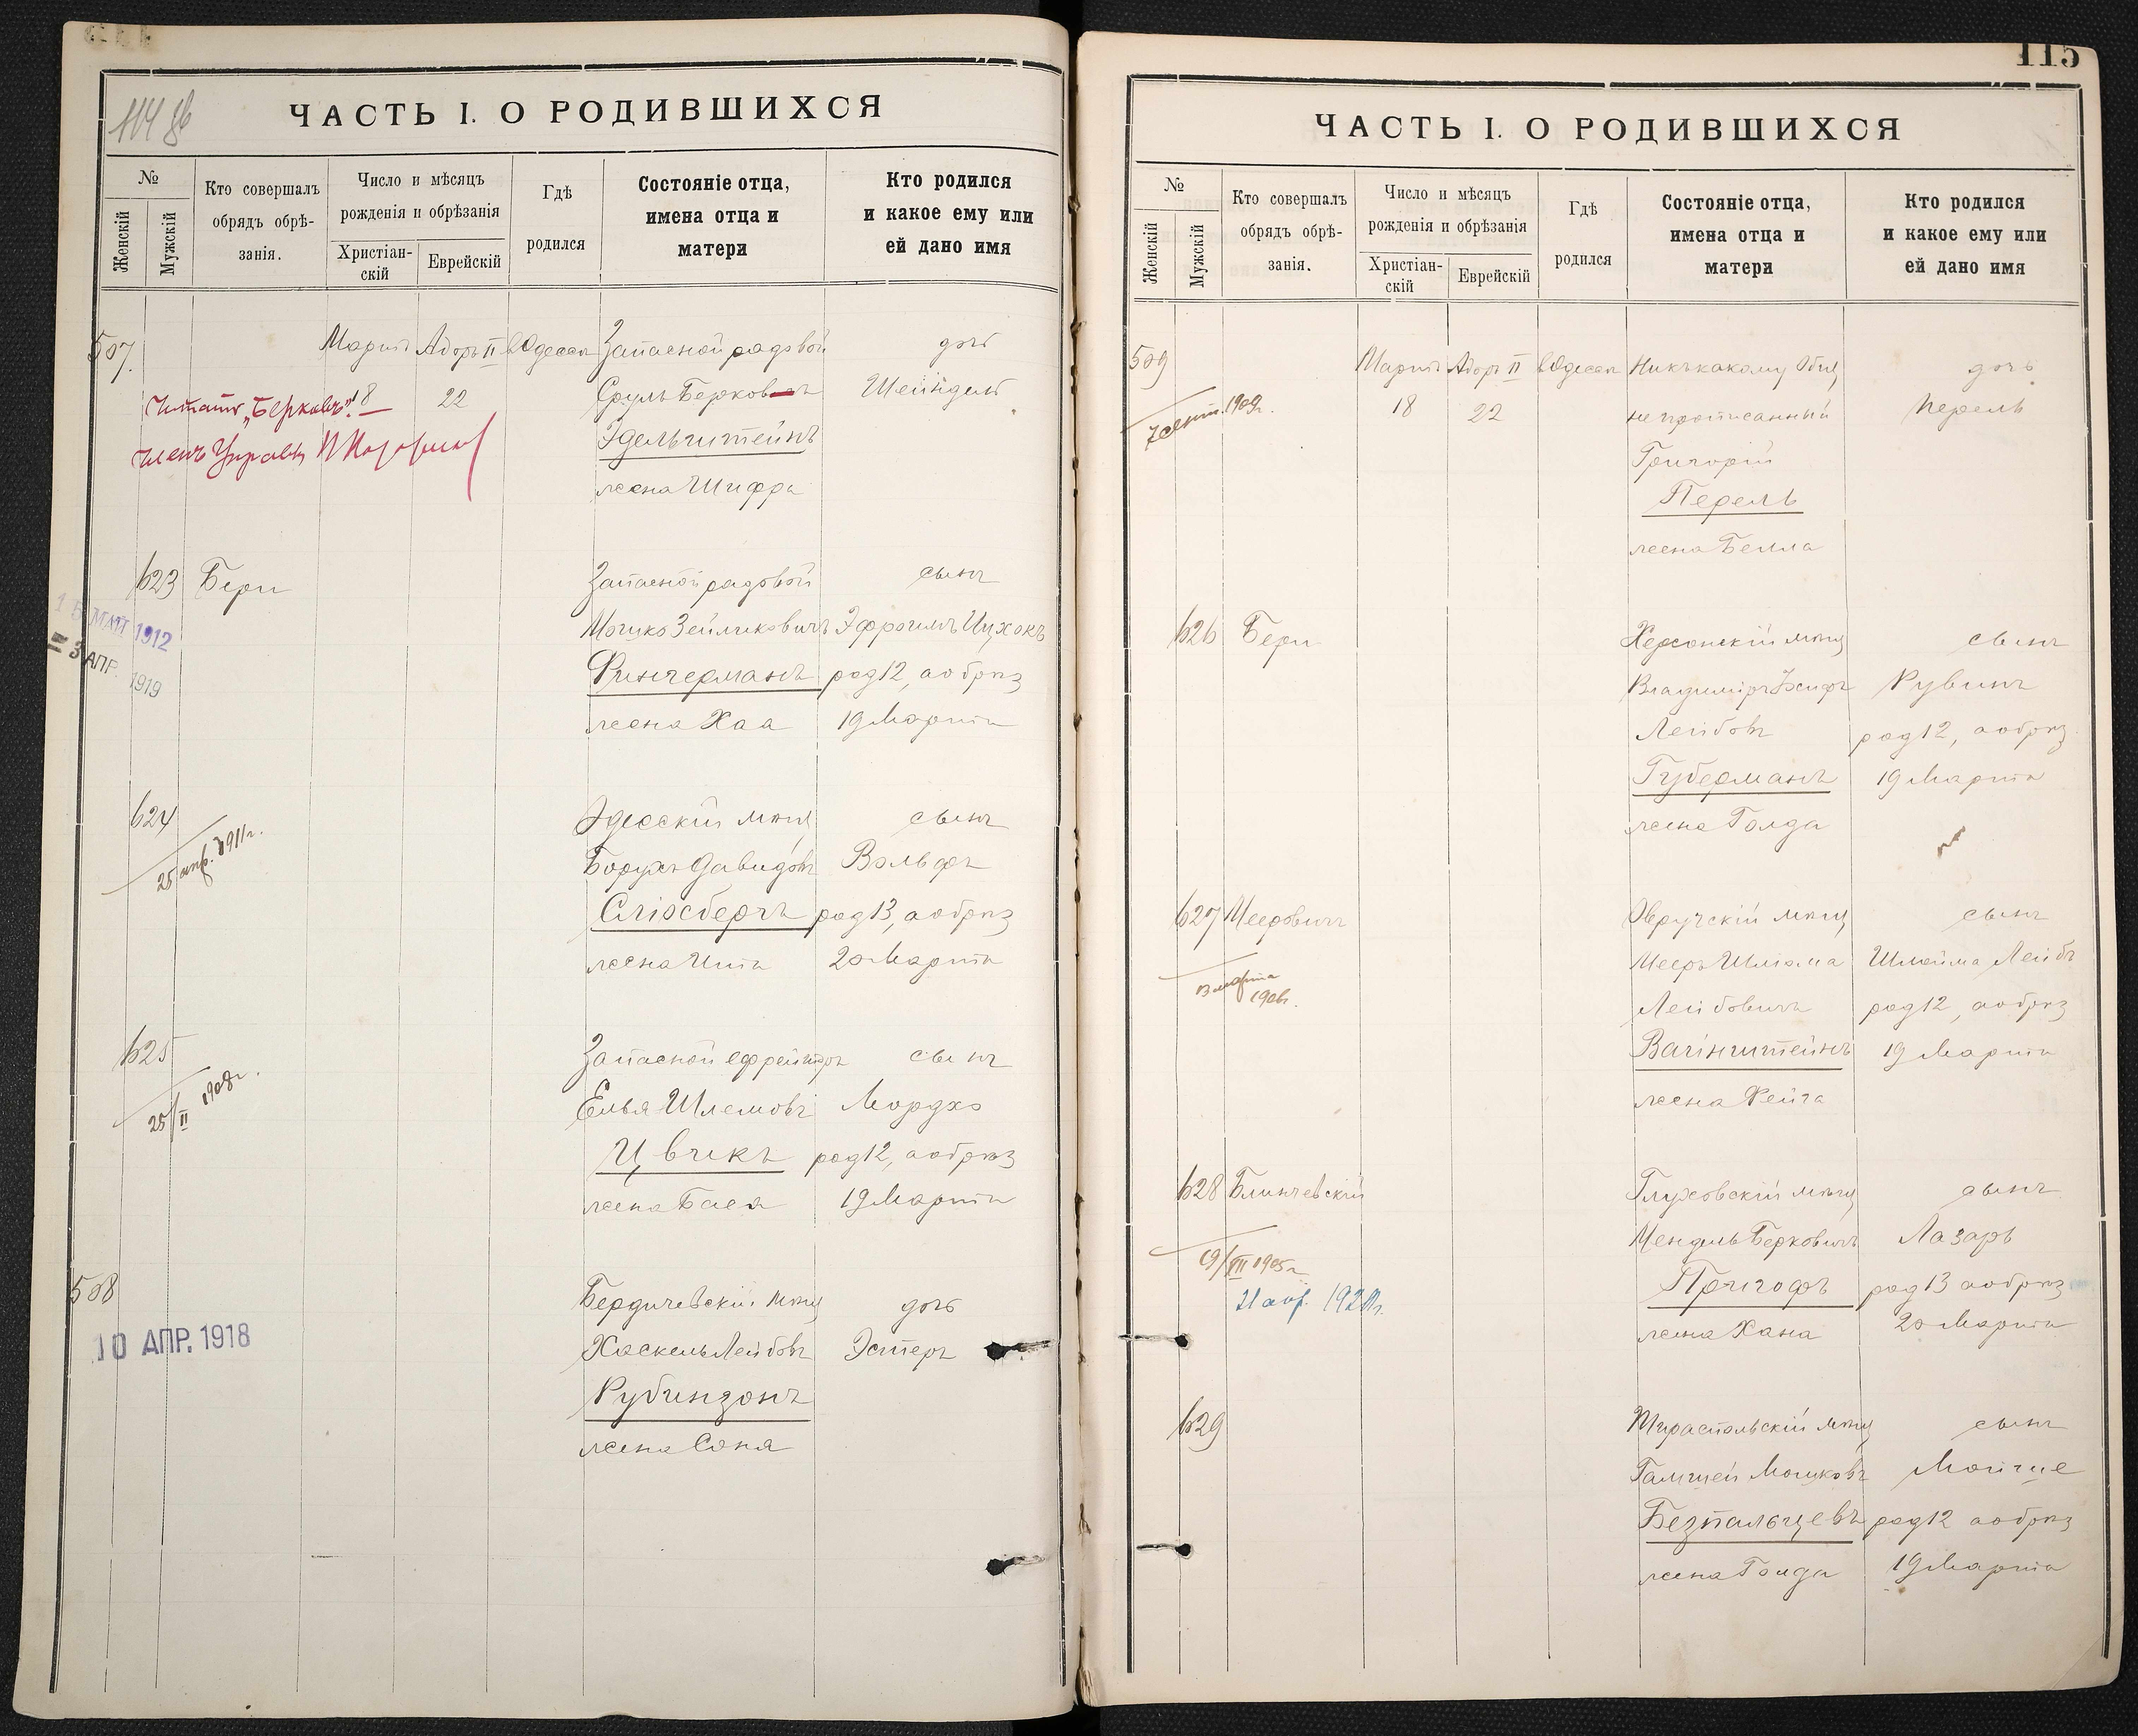 114 об
ЧАСТЬ I. О РОДИВШИХСЯ
№
Женскій
Мужскій
Кто совершалъ
обрядъ обрѣ-
занія.
Число и мѣсяцъ
рожденія и обрѣзанія
Христіан-
скій
Еврейскій
Гдѣ
родился
Состояніе отца,
имена отца и
матери
Кто родился
и какое ему или
ей дано имя
507. Мартъ Адоръ II в Одессѣ Запасной рядовой дочь
Читать „Берковъ" 18 22 Сруль Берковъ Шейндля
Членъ Управы
Эдельштейнъ
жена Шифра
623 Бери Запасной рядовой сынъ
15 МАЙ 1912
Мошко Зейликовичъ Эфроимъ Ицхокъ
= 3 АПР. 1919
Фингерманъ род 12, а обрѣз
жена Хая 19 Марта
624 Одесскій мѣщ сынъ
25 апр. 1911 г.
Борухъ Давидовъ Вольфъ
Сліозбергъ род 13, а обрѣз
жена Ита 20 Марта
625 Запасной ефрейторъ сынъ
25/II 1908 г.
Елья Шлемовъ Мордко
Цвикъ род 12, а обрѣз
жена Бася 19 Марта
508 Бердичевскій мѣщ дочь
10 АПР. 1918
Хаскель Лейбовъ Эстеръ
Рубинзонъ
жена Соня
115
ЧАСТЬ I. О РОДИВШИХСЯ
№
Женскій
Мужскій
Кто совершалъ
обрядъ обрѣ-
занія.
Число и мѣсяцъ
рожденія и обрѣзанія
Христіан-
скій
Еврейскій
Гдѣ
родился
Состояніе отца,
имена отца и
матери
Кто родился
и какое ему или
ей дано имя
509 Мартъ Адоръ II в Одессѣ Никъ какому Общ дочь
7 сент. 1909 г. 18 22 не прописанный Перель
Григорій
Перель
жена Белла
626 Бери Херсонскій мѣщ сынъ
Владиміръ Іосифъ Рувинъ
Лейбовъ род 12, а обрѣз
Губерманъ 19 Марта
жена Голда
627 Мееровичъ Овручскій мѣщ сынъ
Мееръ Шліома Шлойма Лейбъ
13 марта
1906 г.
Лейбовичъ род 12, а обрѣз
Вайнштейнъ 19 Марта
жена Фейга
628 Блинчевскій Глуховскій мѣщ сынъ
Мендель Берковичъ Лазарь
19/VII 1905 г.
Пригофъ род 13 а обрѣз
21 апр.
жена Хана 20 Марта
629 Тираспольскій мѣщ сынъ
Гамшей Мошковъ Мойше
Безпальцевъ род 12 а обрѣз
жена Голда 19 Марта